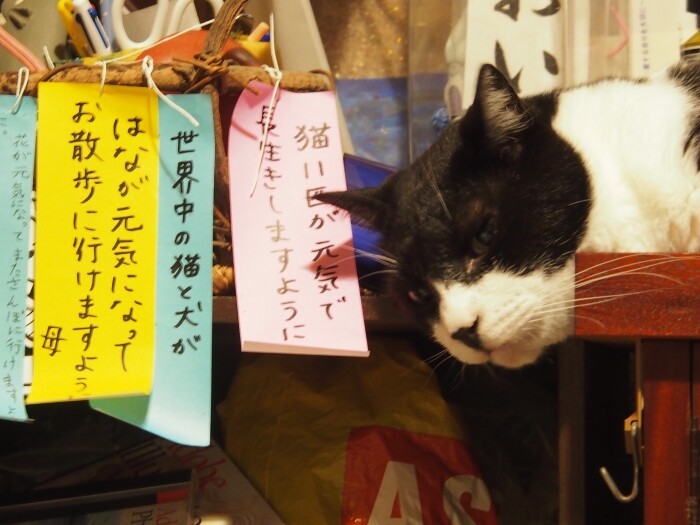 猫11匹が元気で
長生きしますように
世界中の猫と犬が
はなが元気になって
お散歩に行けますよう
母
花が元気になってまたさんぽに行けますよ
AS